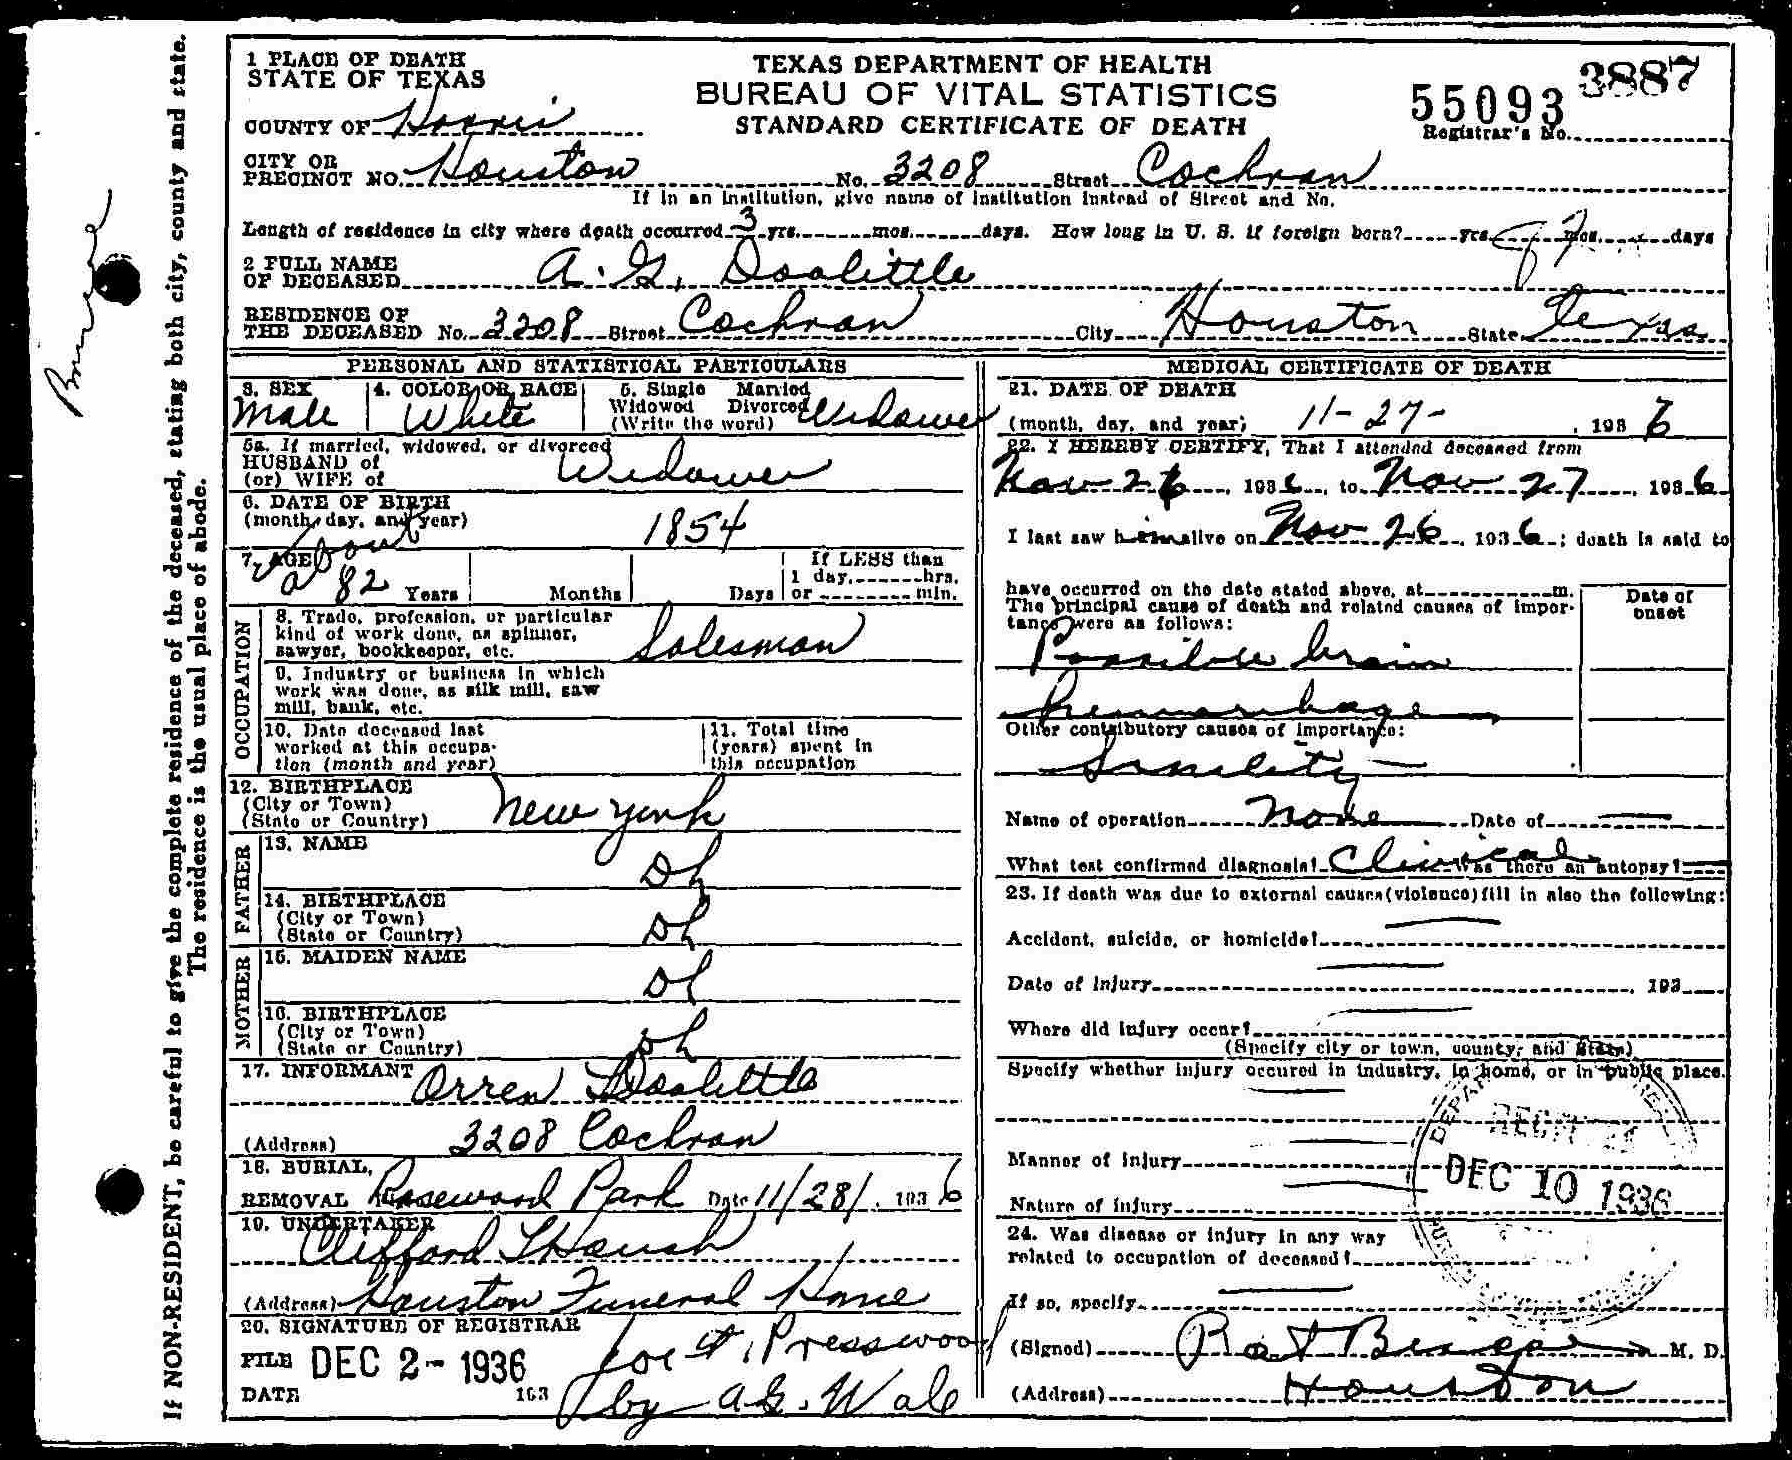 1 PLACE OF DEATH
STATE OF TEXAS
COUNTY OF Harris
TEXAS DEPARTMENT OF HEALTH
BUREAU OF VITAL STATISTICS
STANDARD CERTIFICATE OF DEATH
55093 3887
Registrar's No.
CITY OR
PRECINCT NO. Houston No. 3208 Street Cochran
If in an institution, give name of institution instead of Street and No.
Length of residence in city where death occurred 3 yrs. mos. days. How long in U. S. if foreign born? yrs. mos. days
2 FULL NAME
OF DECEASED A. G. Doolittle
RESIDENCE OF
THE DECEASED No. 3208 Street Cochran City Houston State Texas
PERSONAL AND STATISTICAL PARTICULARS
3. SEX
Male
4. COLOR OR RACE
White
5. Single Married
Widowed Divorced
(Write the word) Widower
5a. If married, widowed, or divorced
HUSBAND of
(or) WIFE of Widower
6. DATE OF BIRTH
(month, day, and year) 1854
7. AGE About
82 Years Months Days
If LESS than
1 day, hrs.
or min.
OCCUPATION
8. Trade, profession, or particular
kind of work done, as spinner,
sawyer, bookkeeper, etc. Salesman
9. Industry or business in which
work was done, as silk mill, saw
mill, bank, etc.
10. Date deceased last
worked at this occupa-
tion (month and year)
11. Total time
(years) spent in
this occupation
12. BIRTHPLACE
(City or Town)
(State or Country) New York
FATHER
13. NAME dk
14. BIRTHPLACE
(City or Town)
(State or Country) dk
MOTHER
15. MAIDEN NAME dk
16. BIRTHPLACE
(City or Town)
(State or Country) dk
17. INFORMANT Orren Doolittle
(Address) 3208 Cochran
18. BURIAL,
REMOVAL Rosewood Park Date 11/28/, 1936
19. UNDERTAKER
Clifford
(Address) Houston Funeral Home
20. SIGNATURE OF REGISTRAR
FILE DEC 2 - 1936
DATE 193
Presswood
by A.G. Wale
MEDICAL CERTIFICATE OF DEATH
21. DATE OF DEATH
(month, day, and year) 11-27-, 1936
22. I HEREBY CERTIFY, That I attended deceased from
Nov 26, 1936, to Nov 27, 1936
I last saw him alive on Nov 26, 1936; death is said to
have occurred on the date stated above, at m.
The principal cause of death and related causes of impor-
tance were as follows:
Date of
onset
Possible brain
hemorrhage
Other contributory causes of importance:
Senility
Name of operation None Date of
What test confirmed diagnosis? Clinical Was there an autopsy?
23. If death was due to external causes (violence) fill in also the following:
Accident, suicide, or homicide?
Date of injury , 193
Where did injury occur?
(Specify city or town, county, and State)
Specify whether injury occured in industry, in home, or in public place.
Manner of injury
Nature of injury
DEC 10 1936
24. Was disease or injury in any way
related to occupation of deceased?
If so, specify
(Signed) M. D.
(Address) Houston
If NON-RESIDENT, be careful to give the complete residence of the deceased, stating both city, county and state.
The residence is the usual place of abode.